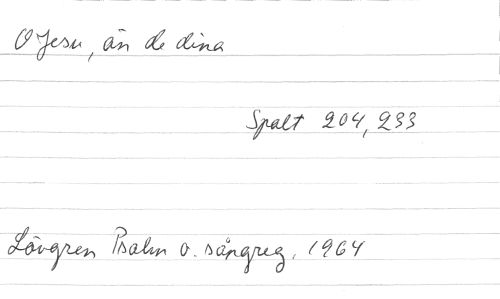 O Jesu, än de dina
Spalt 204, 233
Lövgren Psalm o. sångreg. 1964